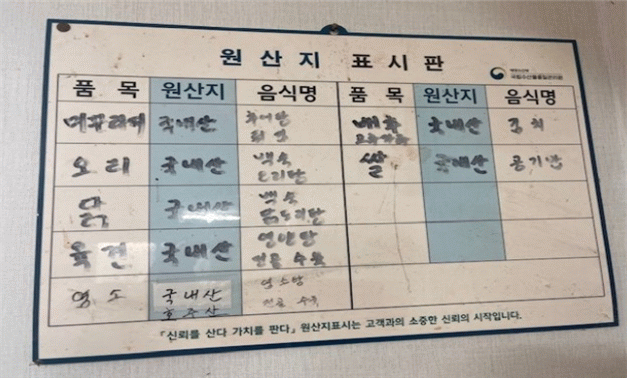 원산지 표시판
국립수산물품질관리원
품목 원산지 음식명 품목 원산지 음식명
미꾸라지 국내산 추어탕 배추 국내산 김치
고추가루
오리 국내산 백숙 쌀 국내산 공기밥
오리탕
닭 국내산 백숙
닭도리탕
육견 국내산 영양탕
전골 수육
염소 국내산 염소탕
호주산 전골 수육
「신뢰를 산다 가치를 판다」 원산지표시는 고객과의 소중한 신뢰의 시작입니다.